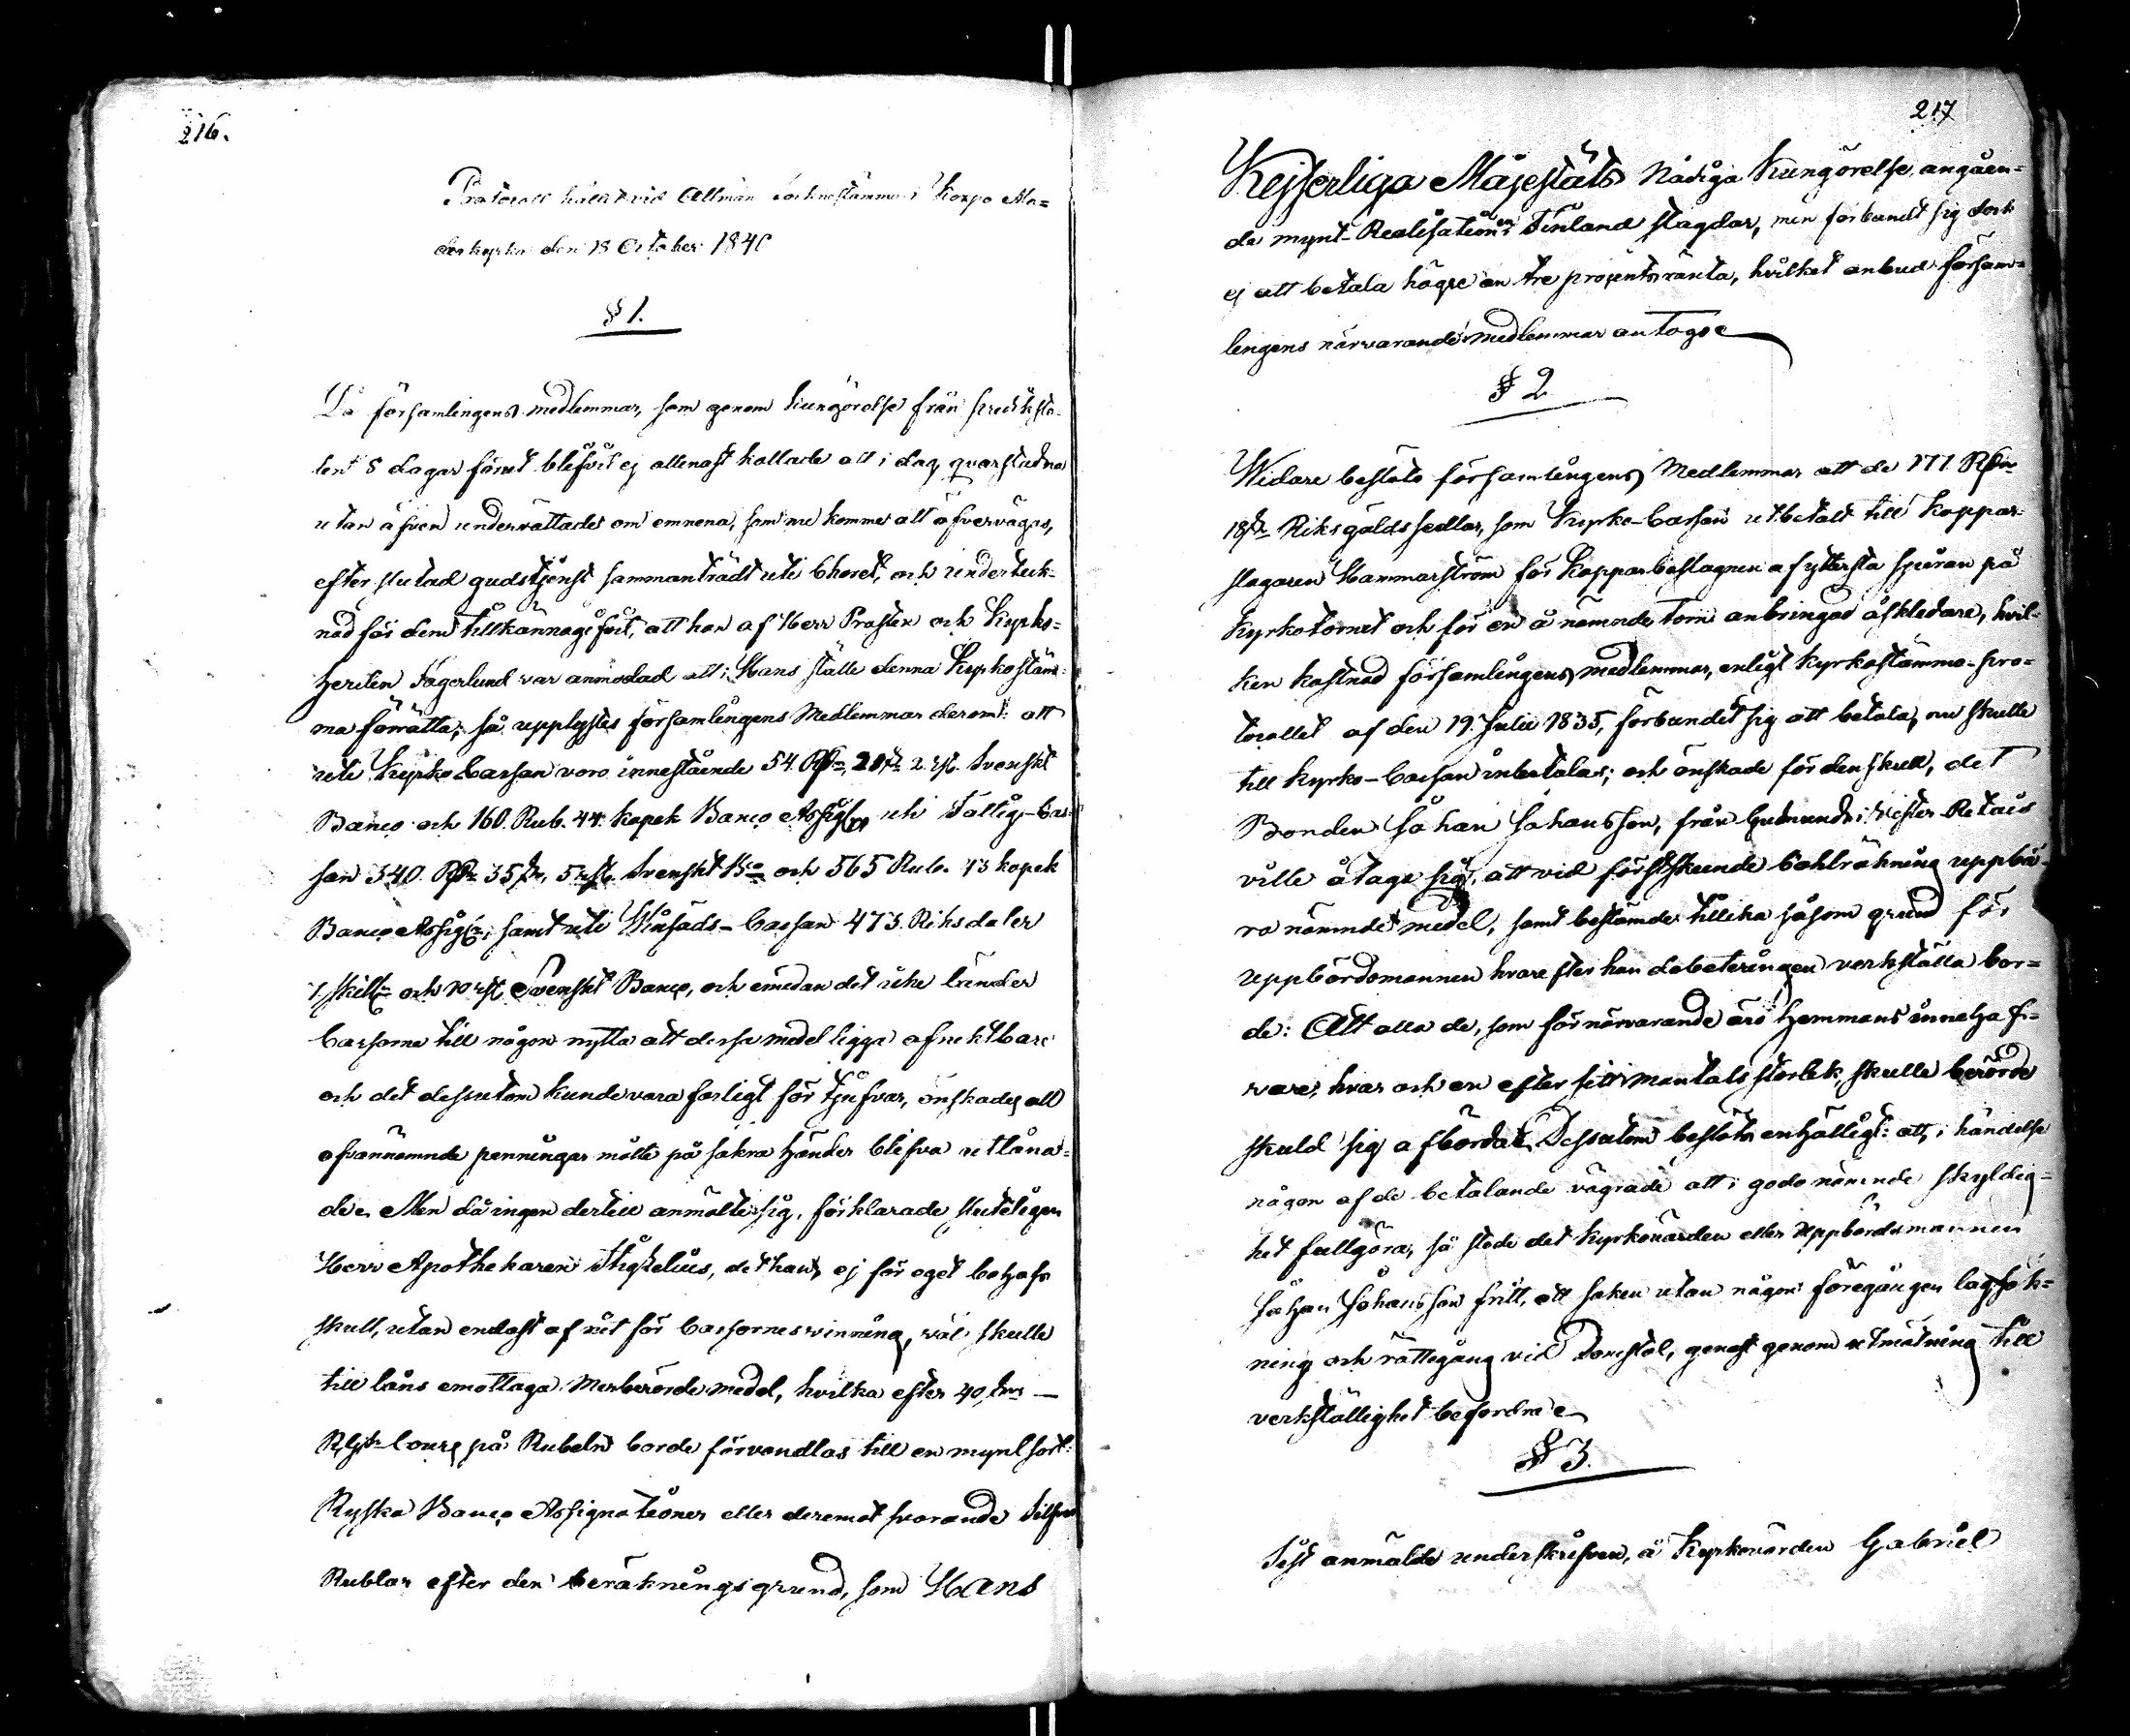 216.
Protocoll hållit vid Allmän Socknestämma i Korpo Mo-
derkyrka den 18 October 1840
§ 1.
Då församlingens medlemmar, som genom kungörelse från prediksto-
len 8 dagar förut blifvit ej allenast kallade att i dag qvarstadna
utan äfven underrättade om ämnena, som nu komme att öfvervägas,
efter slutad gudstjenst sammanträdt uti Choret, och underteck-
nad för dem tillkännagifvit, att han af Herr Prosten och Kyrko-
herden Fagerlund var anmodad att i Hans ställe denna Kyrkostäm-
ma förrätta; så upplystes församlingens Medlemmar derom: att
uti Kyrko Cassan voro innestående 54. Rdr 20 sk 2. rst. Svenskt
Banco och 160. Rub. 44. kopek Banco Assign uti Fattig-Cas-
san 340. Rdr 35 sk, 5 rst. Svenskt Bco och 565 Rub. 43 kopek
Banco Assign; samt uti Kassan 473. Riksdaler
7. skill och 10 rst Svenskt Banco, och emedan det icke länder
Cassorna till någon nytta att dessa medel ligga ofruktbare
och det dessutom kunde vara farligt för tjufvar, önskades att
ofvannemnde penningar måtte på säkra händer blifva utlåna-
de. Men då ingen dertill anmälte sig, förklarade sluteligen
Herr Apothekaren Stigzelius, det han, ej för eget behofs
skull, utan endast af nit för Cassornes vinning, väl skulle
till låns emottaga merberörde medel, hvilka efter 40,
Rgs Cours på Rubeln borde förvandlas till en myntsort:
Ryska Banco Assignationer eller deremot svarande Silfver
Rublar efter den beräkningsgrund, som Hans
217
Kejserliga Majestäts Nådiga Kungörelse angåen-
de mynt-Realisationen i Finland stagdar, men förbandt sig dock
ej att betala högre än tre procents ränta, hvilket anbud försam-
lingens närvarande medlemmar antogo
§ 2
Widare beslöto församlingens Medlemmar att de 177 Rdr
18 sk Riksgälds sedlar, som Kyrko-Cassan utbetalt till Koppar-
slagaren Hammarström för Kopparbeslagning af yttersta spiran på
Kyrkotornet och för en å nämnde torn anbringad åskledare, hvil-
ken kostnad församlingens medlemmar, enligt Kyrkostämmo-pro-
tocollet af den 19 Julii 1835, förbundit sig att betala, nu skulle
till Kyrko-Cassan inbetalas; och önskade för den skull, det
Bonden Johan Johansson, från Gudmunds i Wester Retais
ville åtaga sig, att vid förstskeende Bohlräkning uppbä-
ra nämnde medel, samt bestämde tillika såsom grund för
uppbördsmannen hvarefter han debeteringen verkställa bor-
de: Att alla de, som för närvarande äro hemmans innehaf-
vare, hvar och en efter sitt mantals storlek, skulle berörde
skuld sig afbörda. Dessutom beslöts enhälligt: att, i händelse
någon af de betalande vägrade att i godo nämnde skyldig-
het fullgöra, så stode det Kyrkovärden eller Uppbördsmannen
Johan Johansson fritt, att saken utan någon föregången lagsök-
ning och rättegång vid Domstol, genast genom utmätning till
verkställighet befordra
§ 3.
Sist anmälde underskrifven, å Kyrkovärden Gabriel